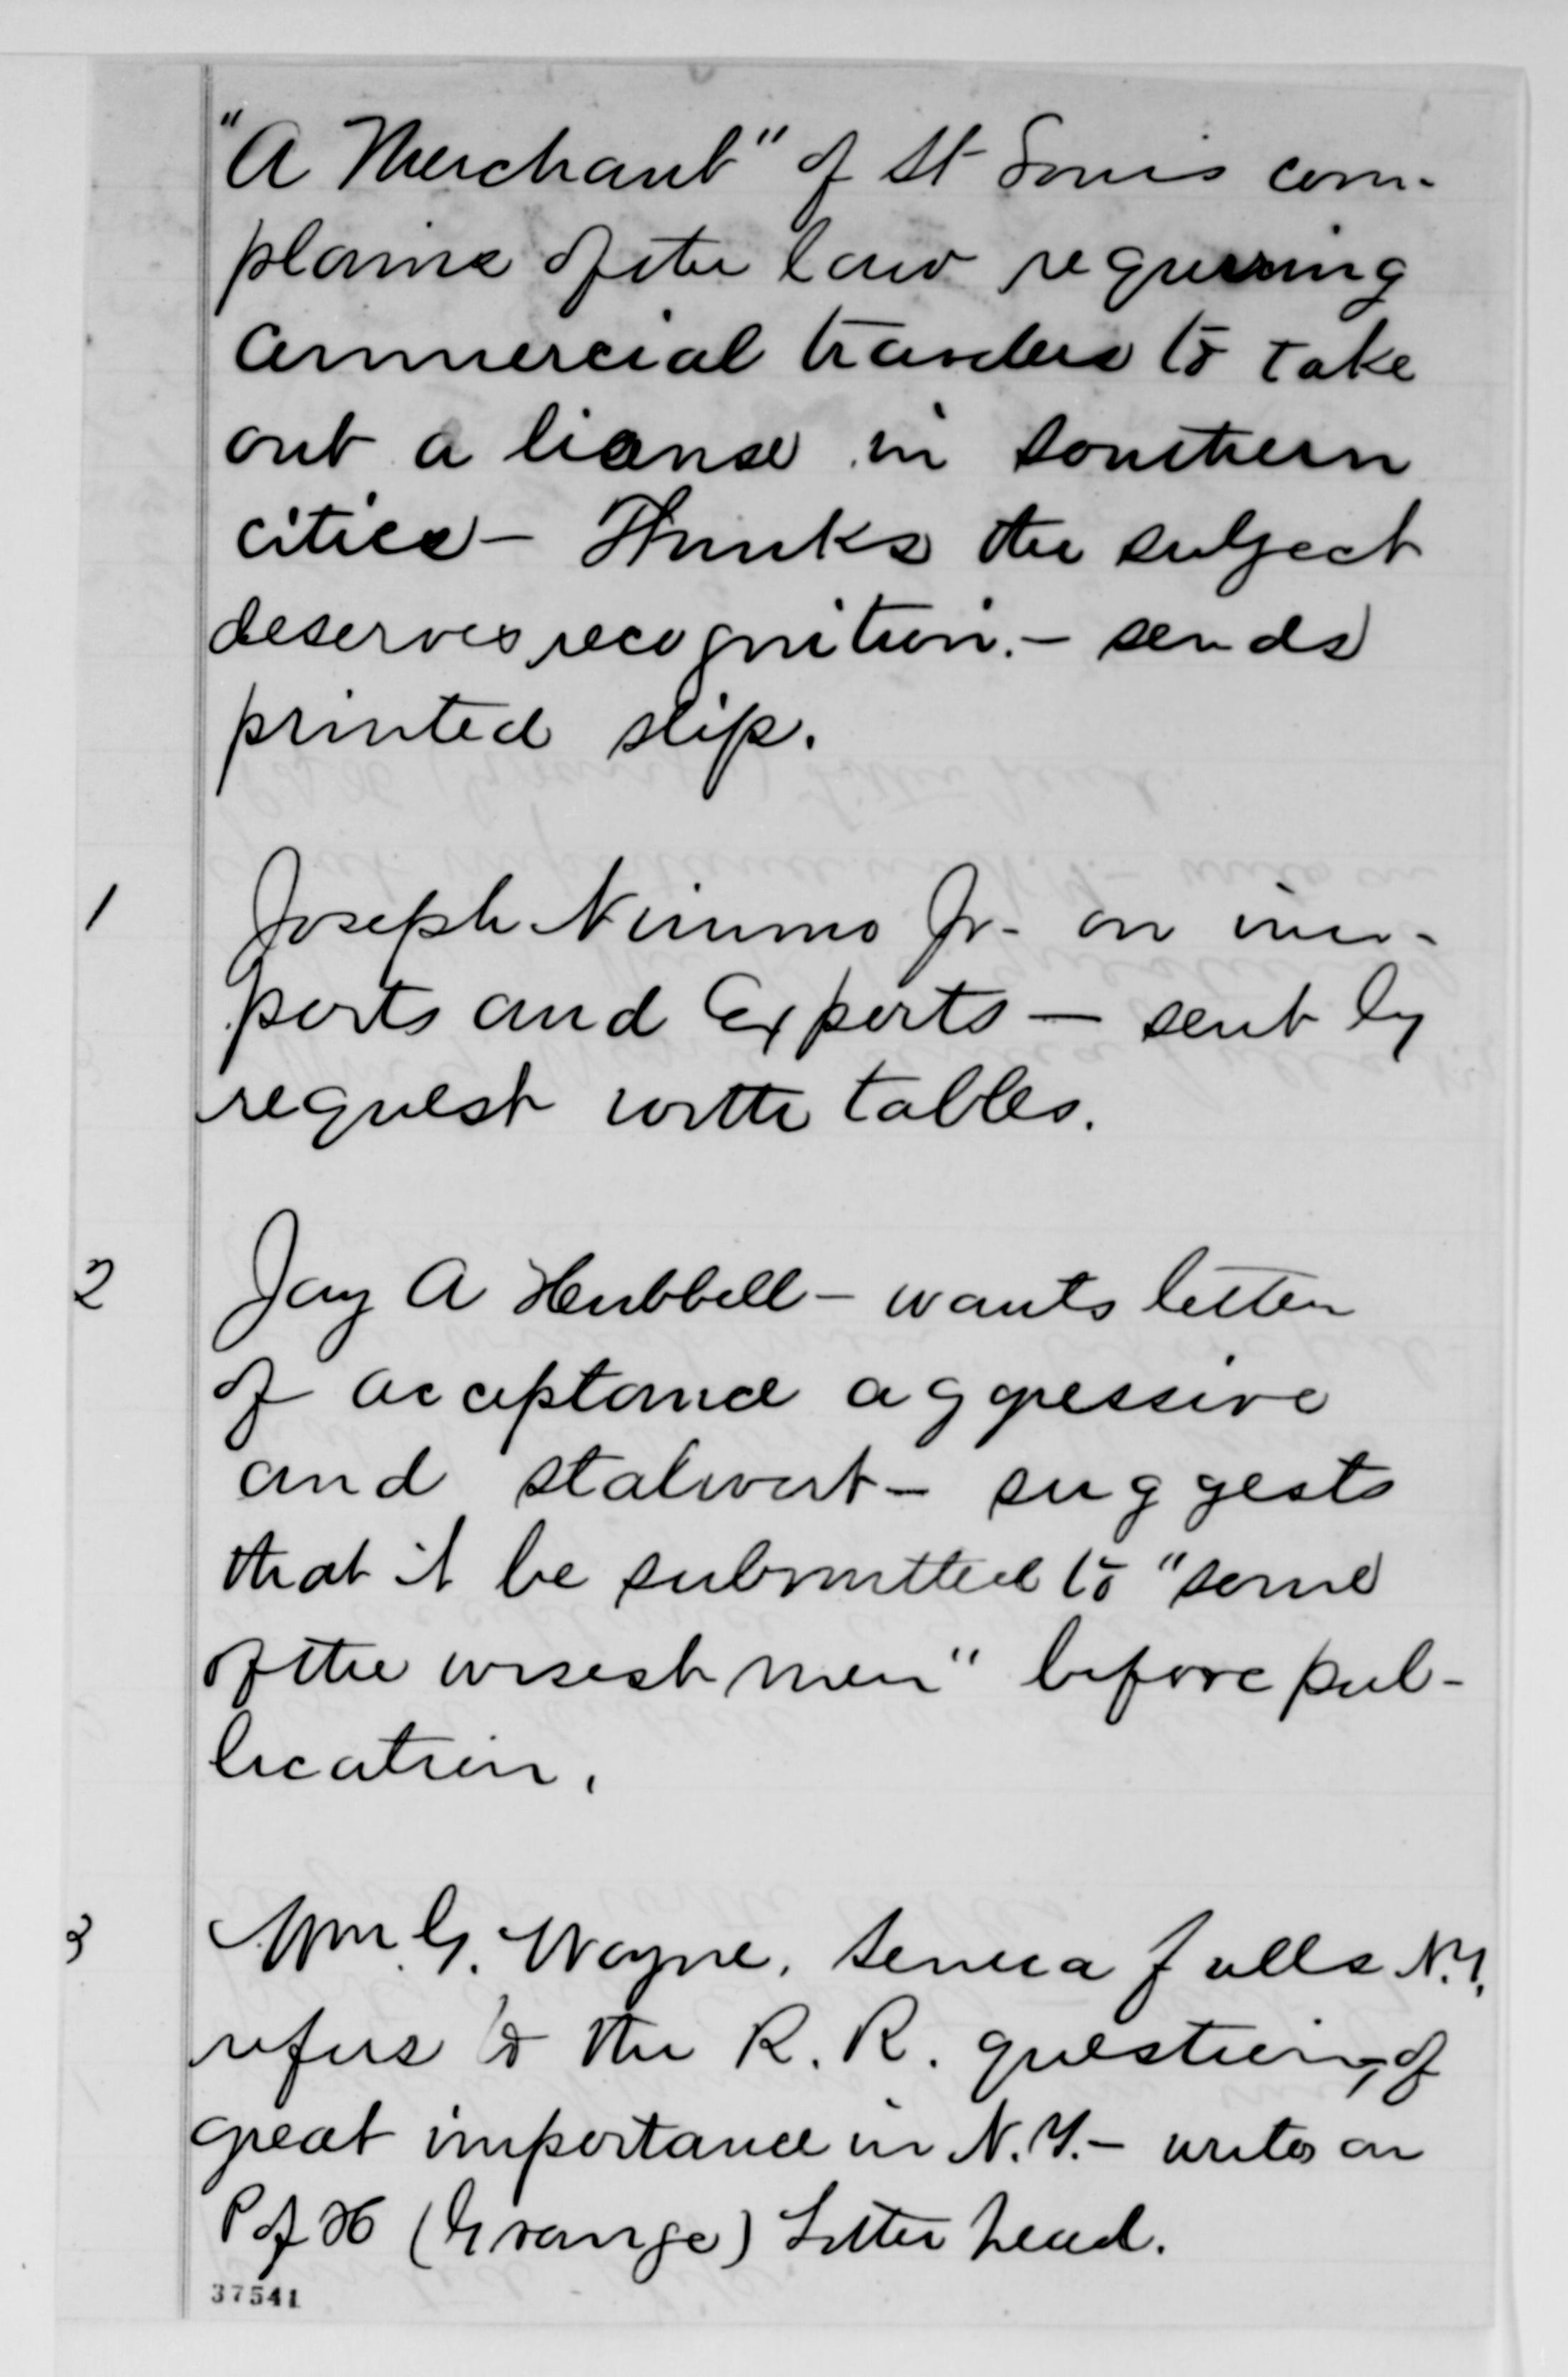 "A Merchant" of St Louis com-
plains of the law requiring
commercial travelers to take
out a license in southern
cities - Thinks the subject
deserves recognition. - sends
printed slip.
1 Joseph Nimmo Jr. on im-
ports and Exports - sent by
request with tables.
2 Jay A Hubbell - wants letter
of acceptance aggressive
and stalwart - suggests
that it be submitted to "some
of the wisest men" before pub-
lication.
3 Wm. G. Wayne, Seneca Falls N.Y.
refers to the R. R. question, of
great importance in N.Y. - writes on
P of H (Grange) Letter head.
37541